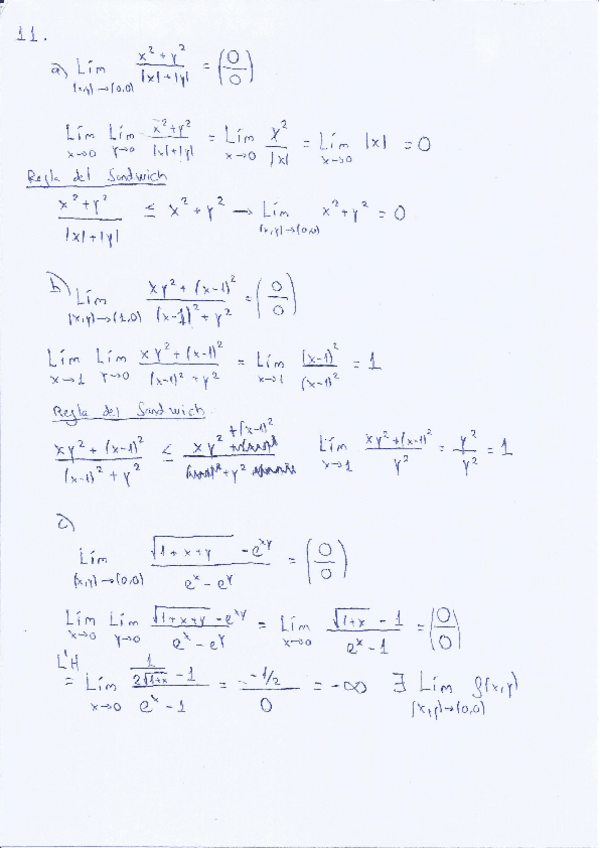 11.
a) Lím (x,y)→(0,0) (x² + y²)/(|x|+|y|) = (0/0)
Lím x→0 Lím y→0 (x²+y²)/(|x|+|y|) = Lím x→0 x²/|x| = Lím x→0 |x| = 0
Regla del Sandwich
(x²+y²)/(|x|+|y|) ≤ x² + y² → Lím (x,y)→(0,0) x²+y² = 0
b) Lím (x,y)→(1,0) (xy² + (x-1)²)/((x-1)² + y²) = (0/0)
Lím x→1 Lím y→0 (xy² + (x-1)²)/((x-1)² + y²) = Lím x→1 (x-1)²/(x-1)² = 1
Regla del Sandwich
(xy² + (x-1)²)/((x-1)² + y²) ≤ (xy² + (x-1)²)/(+ y²) Lím x→1 (xy² + (x-1)²)/y² = y²/y² = 1
c)
Lím (x,y)→(0,0) (√(1+x+y) - e^(xy))/(e^x - e^y) = (0/0)
Lím x→0 Lím y→0 (√(1+x+y) - e^(xy))/(e^x - e^y) = Lím x→0 (√(1+x) - 1)/(e^x - 1) = (0/0)
L'H = Lím x→0 (1/(2√(1+x)) - 1)/(e^x - 1) = (-1/2)/0 = -∞ ∃ Lím (x,y)→(0,0) f(x,y)